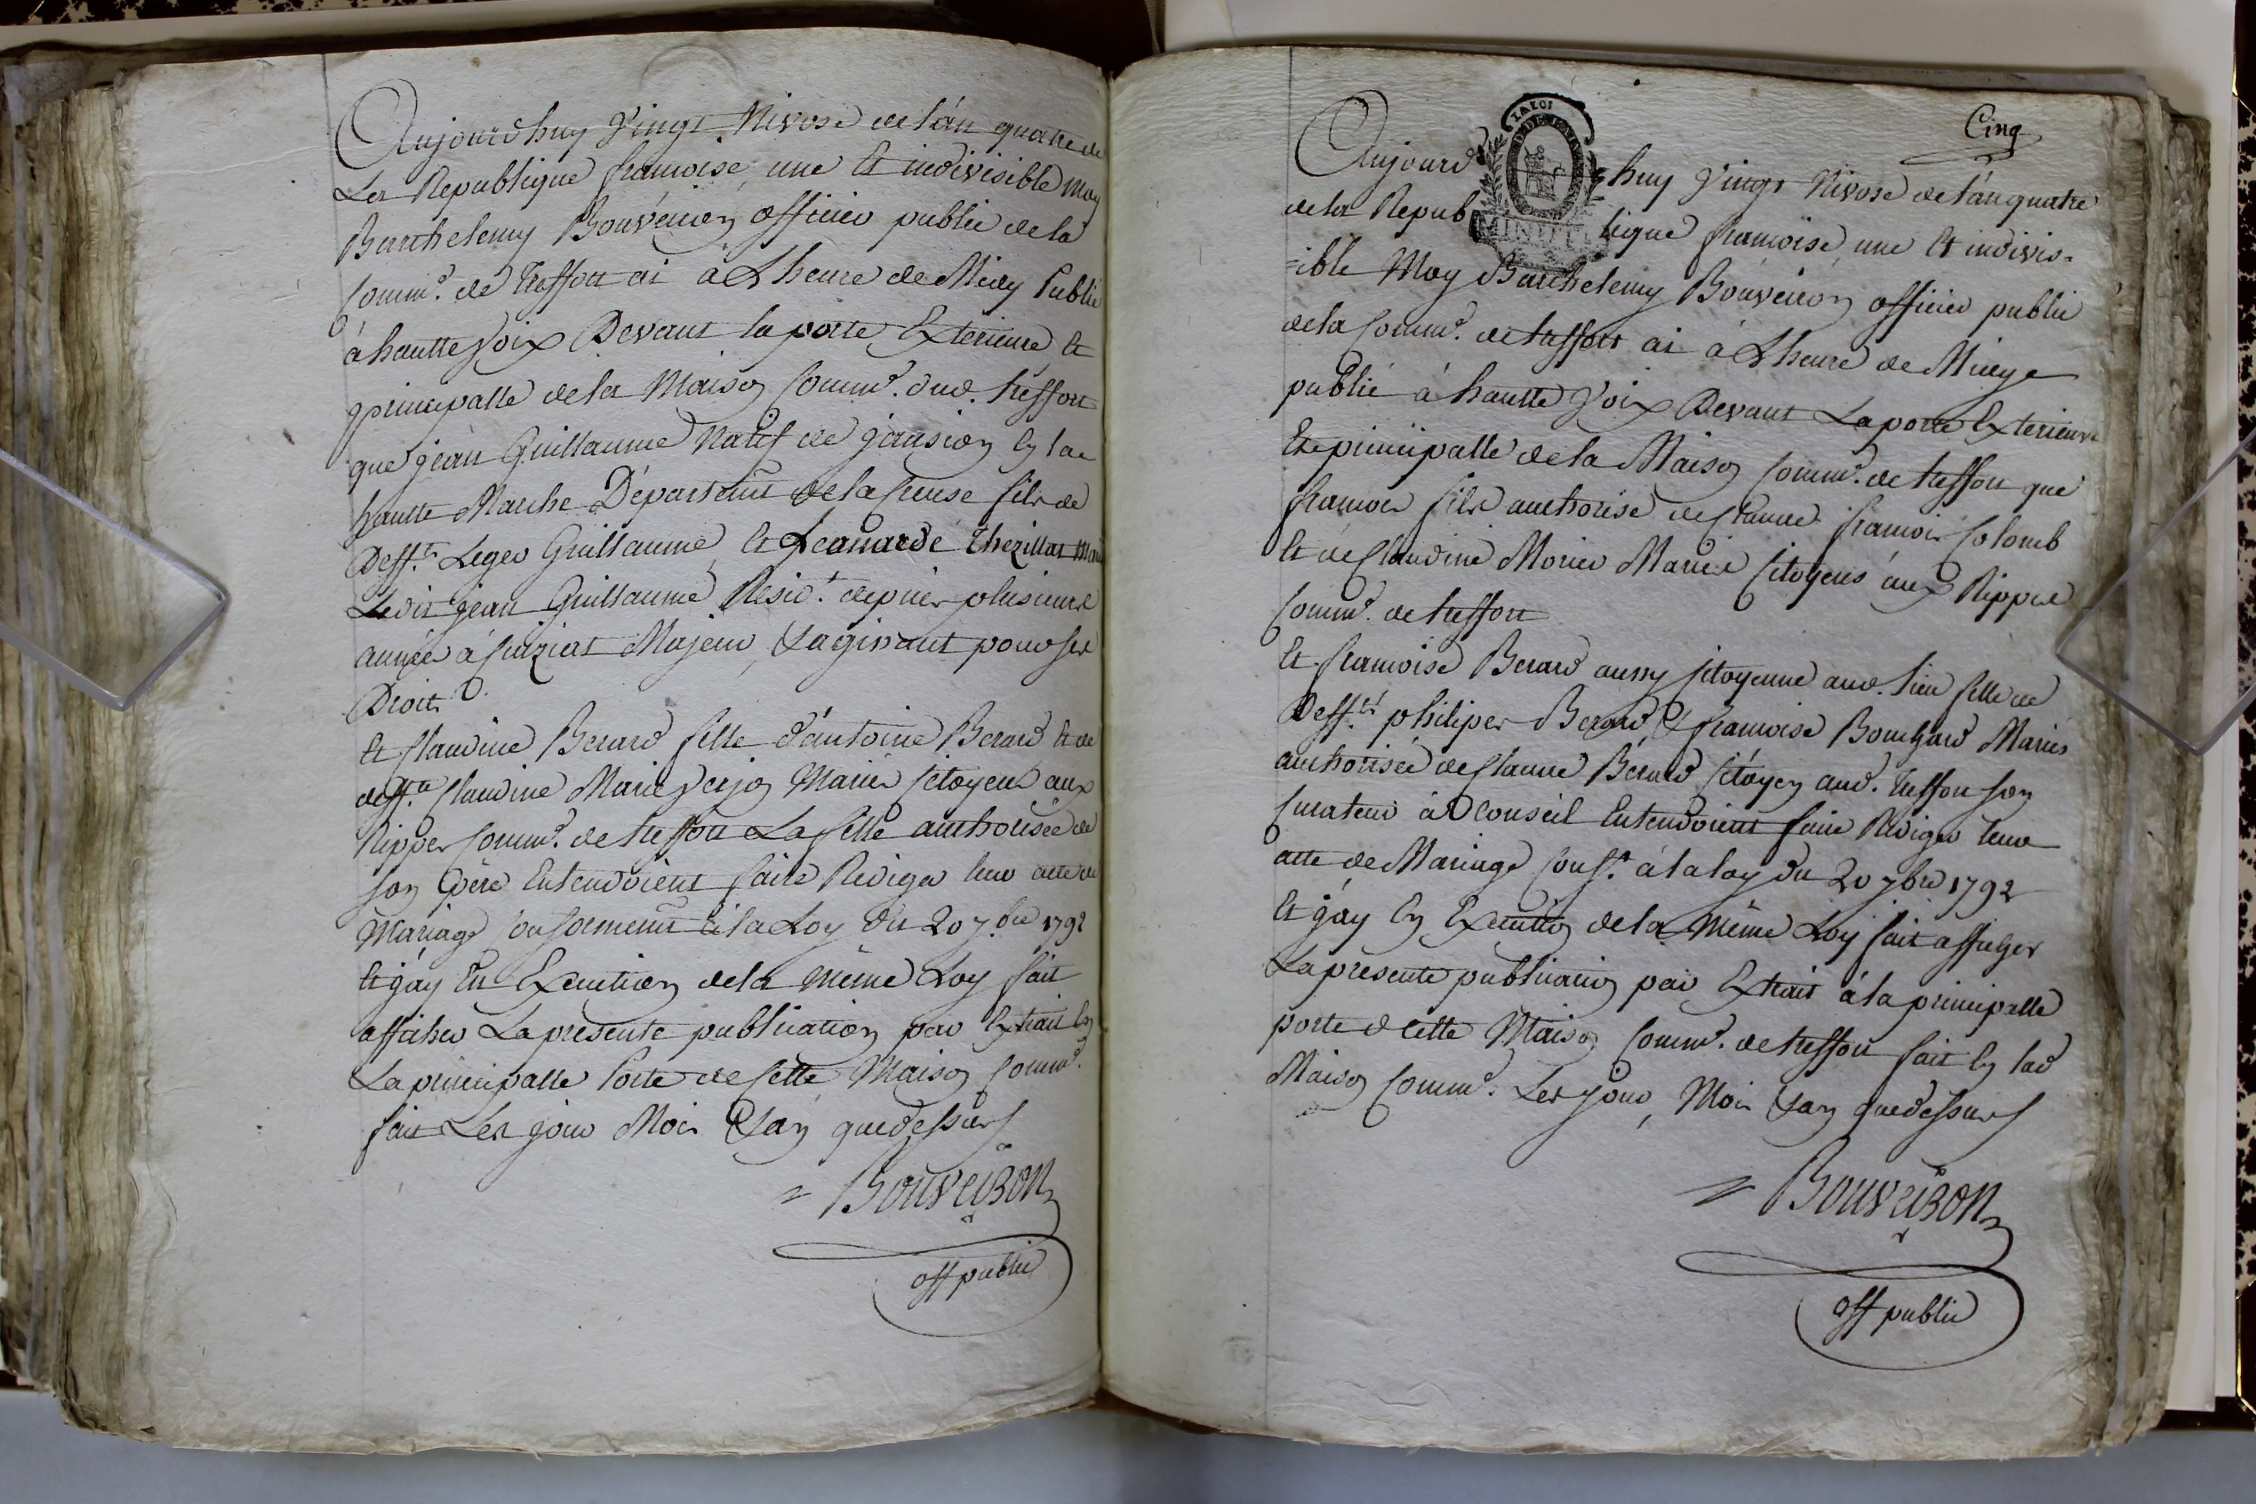 Aujourdhuy Vingt Nivose de lán quatre de
Les Republique francoise, une Et indivisible Moy
Barthelemy Bouveiron officier public de la
Comm.e de treffort ai à L heure de Midy Publié
à hautte Voix Devant la porte Exterieure Et
principalle de la Maison Comm.e dud. treffort
que jean Guillaume Natif de En la
hautte Marche Départemt de la Creuse fils de
Deff.ts Leger Guillaume, Et Leonarde Thezillat
Ledit jean Guillaume Resid.t depuis plusieurs
année à Cuiziat Majeur, & agissant pour ses
Droits.
Et Claudine Berard fille d'antoine Berard Et de
deff.te Claudine Marie Verjon Mariés Citoyens aux
Rippes Comm.e de treffort La fille authorisée de
son Père Entendoient faire Rediger leur acte de
Mariage Conformemt à la Loy du 20 7.bre 1792
Et j'ay En Execution de la Même Loy fait
afficher La presente publication par Extrait En
La principalle Porte de Cette Maison Comm.e
fait Les jour Mois & an que dessus
Bouveiron
off public
Cinq
LA LOI
Aujourd huy Vingt Nivose de lán quatre
de la Repub lique francoise, une Et indivis=
=ible Moy Barthelemy Bouveiron officier public
de la Comm.e de treffort ai à L heure de Midy
publié à hautte Voix Devant La porte Exterieure
Et principalle de la Maison Comm.e de treffort que
francois fils authorisé de Claude francois Colomb
Et de Claudine Morier Mariés Citoyens aux Rippes
Comm.e de treffort
Et francoise Berard aussy Citoyenne aud. lieu fille de
Deff.ts philiper Berard, & francoise Bouchard Mariés
authorisée de Claude Berard Citoyen aud. treffort son
Curateur à Conseil Entendoient faire Rediger leur
acte de Mariage Conf.t à la loy du 20 7bre 1792
Et j'ay En Execution de la Même Loy fait afficher
La presente publication par Extrait à la principalle
porte d cette Maison Comm.e de treffort fait En lad
Maison Comm.e Les jour, Mois & an que dessus
Bouveiron
off public